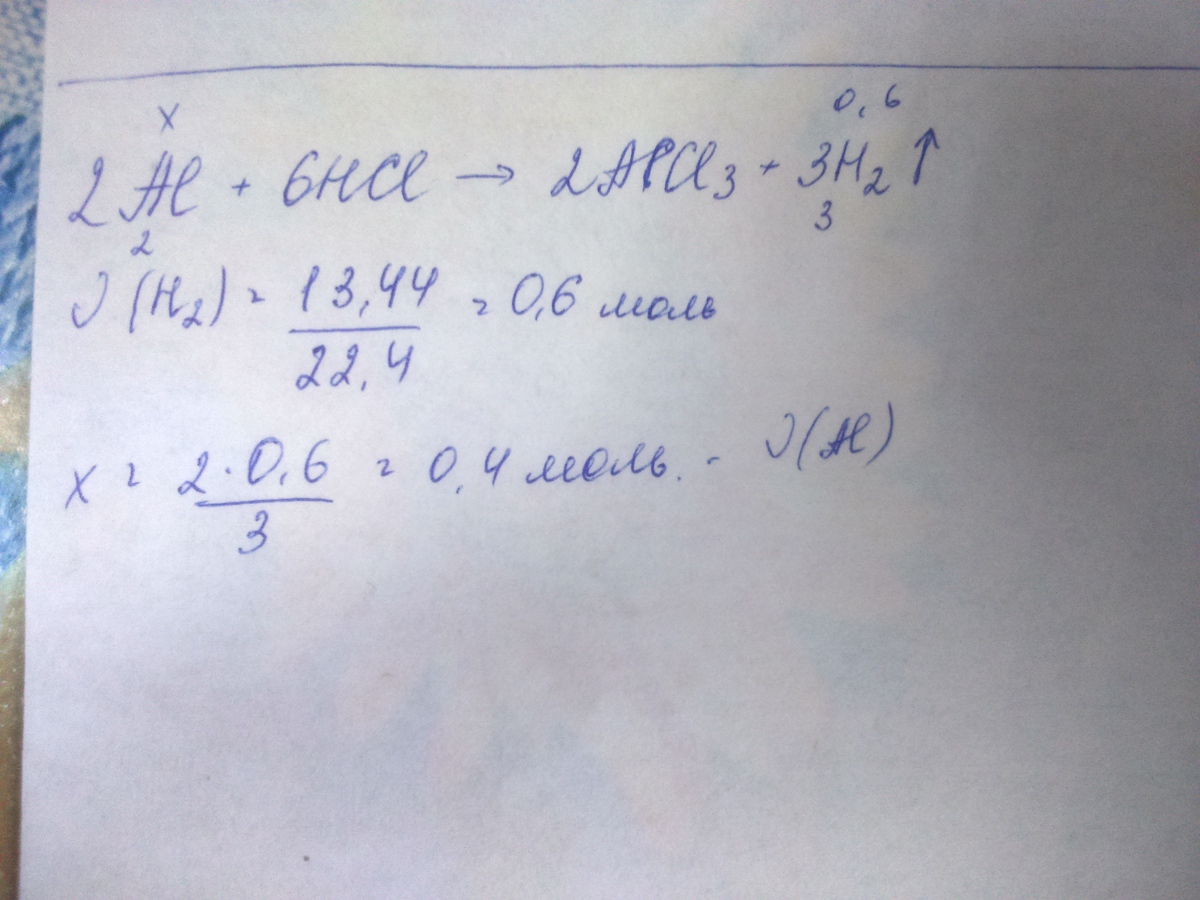 x 0,6
2Al + 6HCl → 2AlCl₃ + 3H₂↑
2 3
ν(H₂) = 13,44 / 22,4 = 0,6 моль
x = 2·0,6 / 3 = 0,4 моль. - ν(Al)